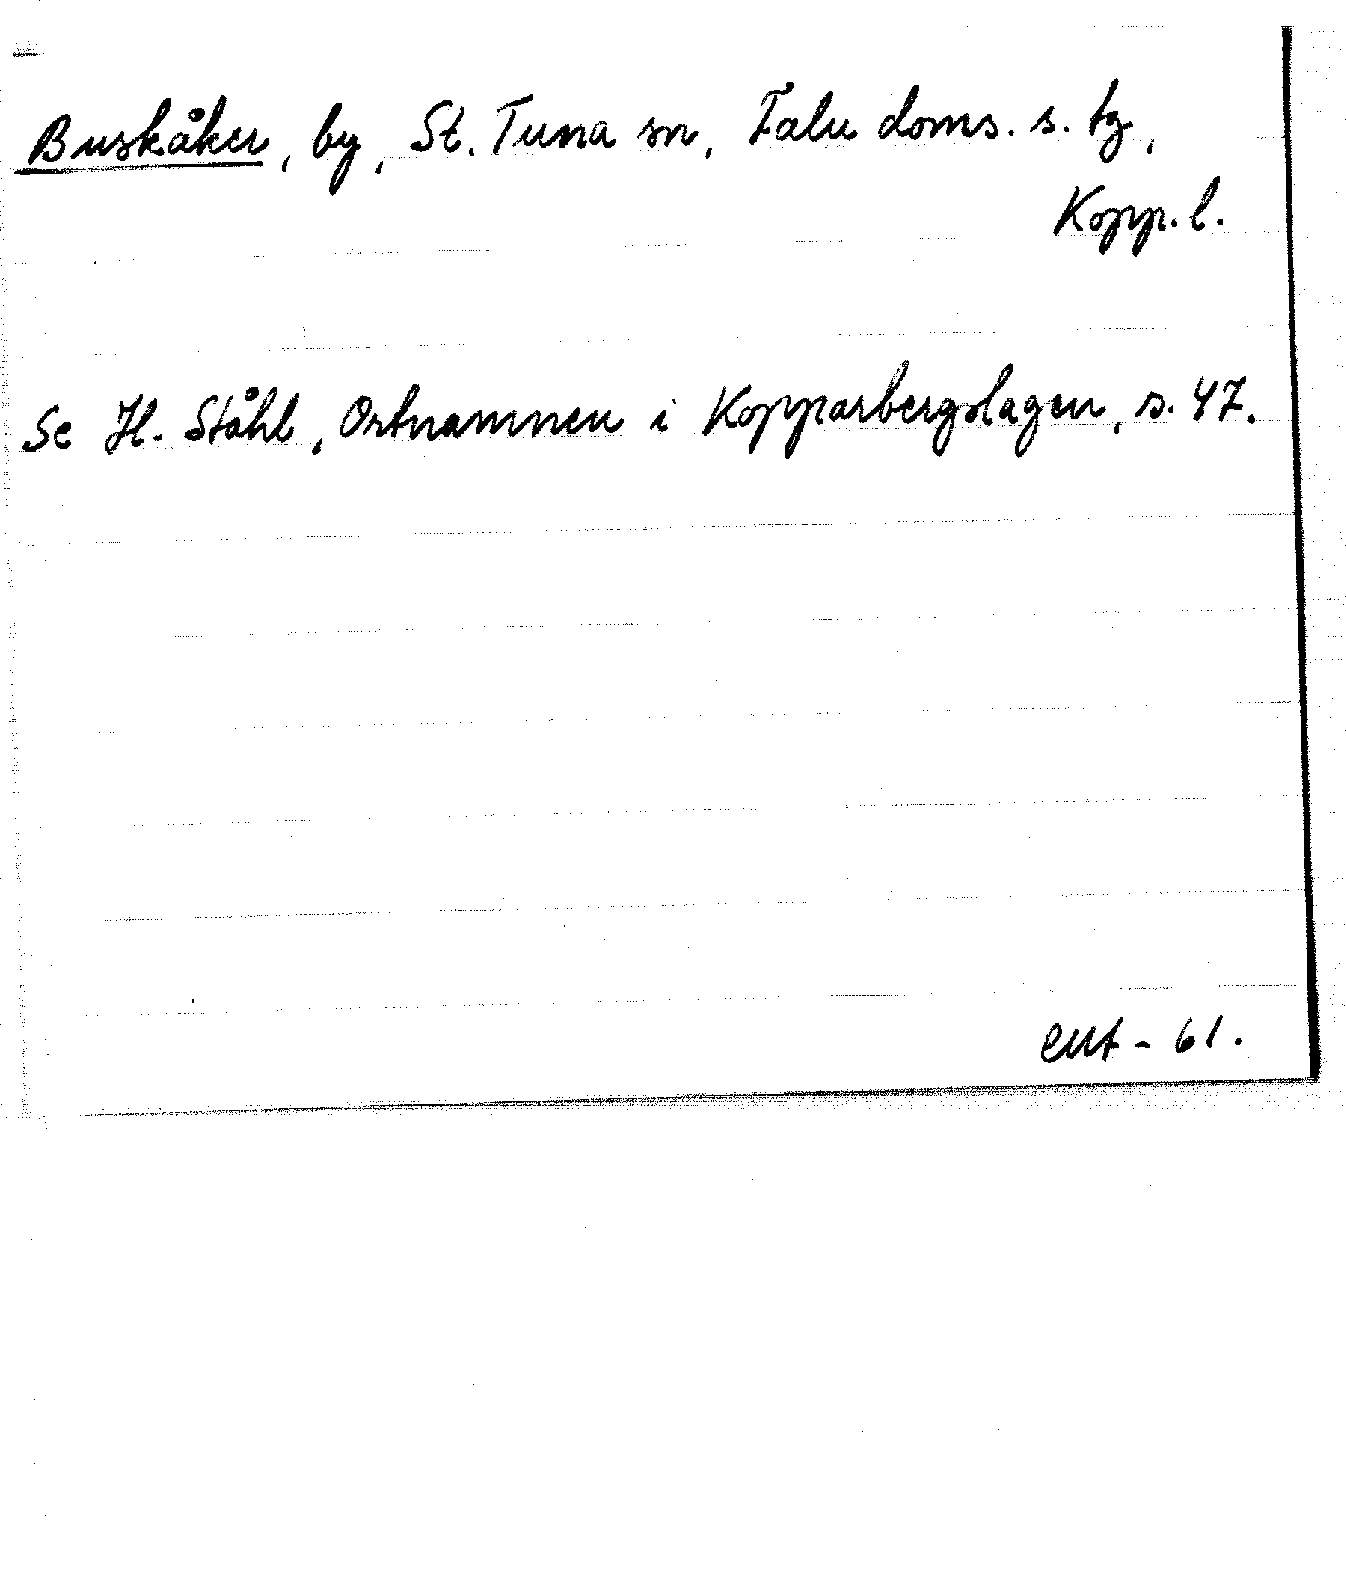 Buskåker, by, St. Tuna sn, Falu doms. s. tg,
Kopp. l.
Se H. Ståhl, Ortnamnen i Kopparbergslagen, s. 47.
- 61.